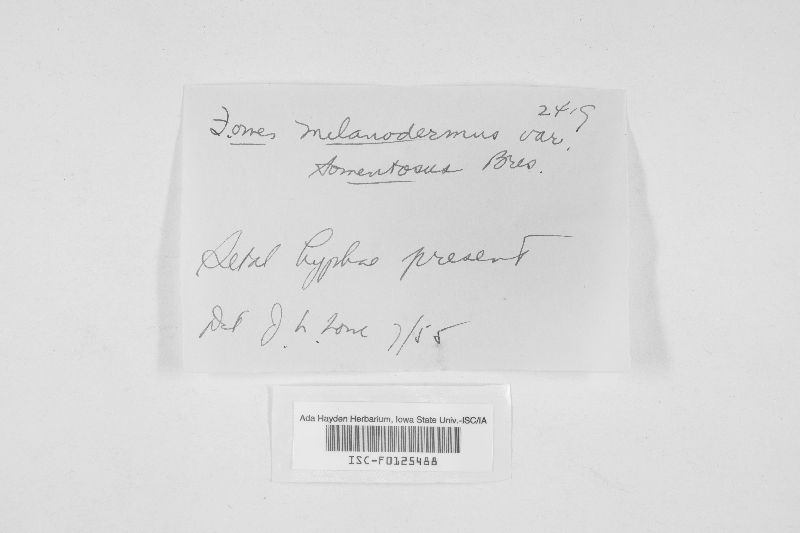 2419
Fomes melanodermus var.
tomentosus Bres.
Setal hyphae present
Det J. L. Lowe 7/55
Ada Hayden Herbarium, Iowa State Univ.-ISC/IA
ISC-F0125488